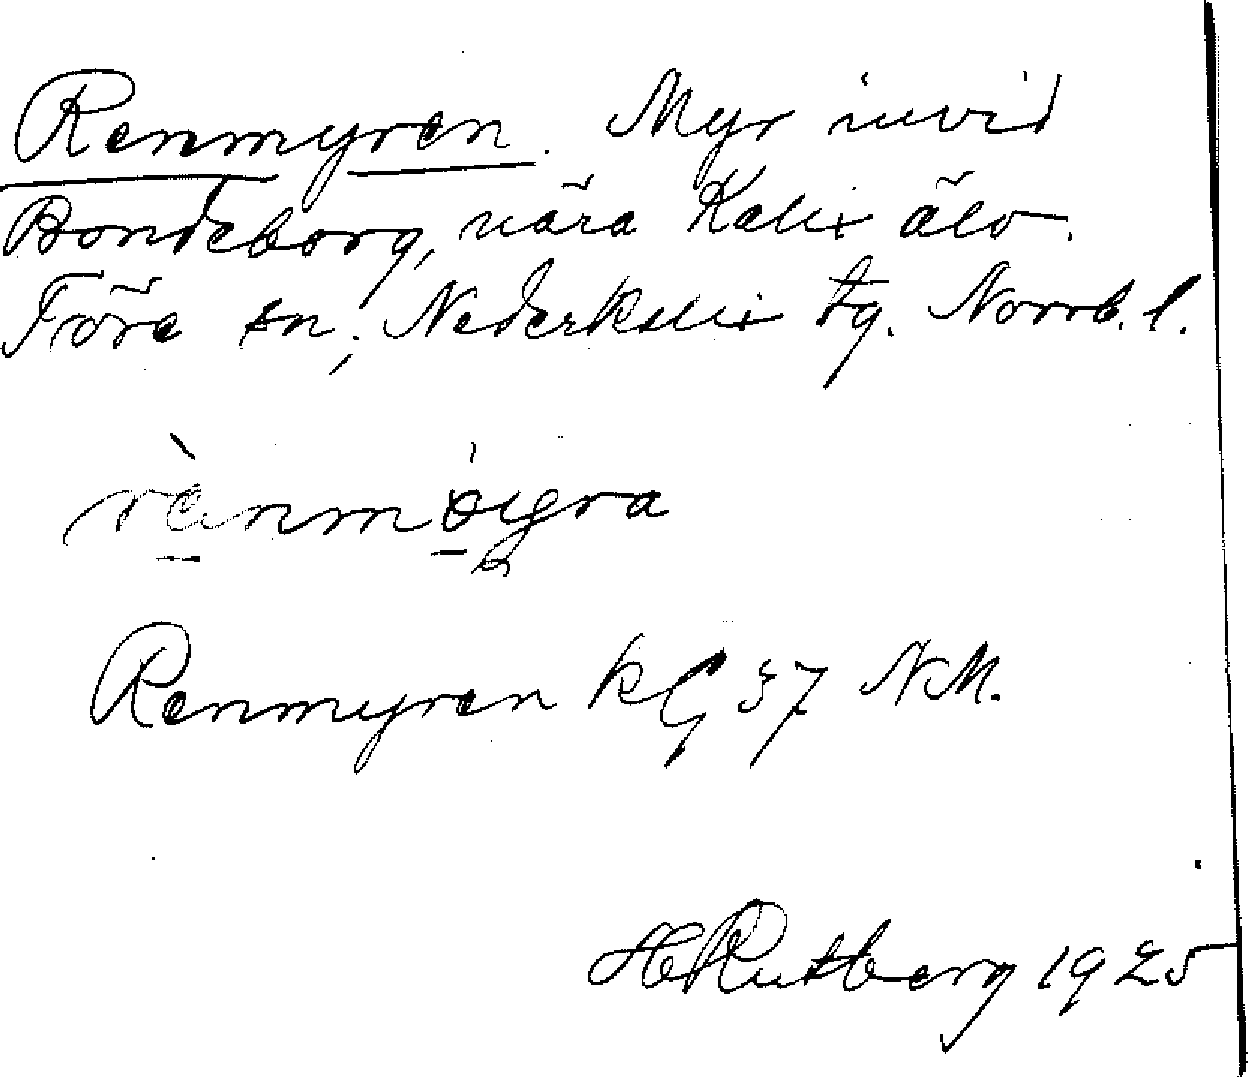 Renmyren. Myr invid
Bondeborg, nära Kalix älv.
Töre sn, Nederkalix tg. Norrb. l.
Renmyren kG 37 NM.
HRutberg 1925